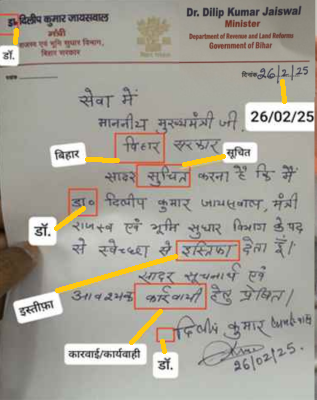 डा. दिलीप कुमार जायसवाल
मंत्री
राजस्व एवं भूमि सुधार विभाग,
बिहार सरकार
डॉ.
Dr. Dilip Kumar Jaiswal
Minister
Department of Revenue and Land Reforms
Government of Bihar
दिनांक 26/2/25
26/02/25
सेवा में
माननीय मुख्यमंत्री जी.
बिहार सरकार
बिहार
सूचित
सादर सुचित करना है कि मैं
डा० दिलीप कुमार जायसवाल, मंत्री
डॉ.
राजस्व एवं भूमि सुधार विभाग के पद
से स्वेच्छा से इस्तिफा देता हूँ।
इस्तीफ़ा
सादर सूचनार्थ एवं
आवश्यक कार्यवाही हेतु प्रेषित।
कारवाई/कार्यवाही
डॉ.
दिलीप कुमार जायसवाल
26/02/25.